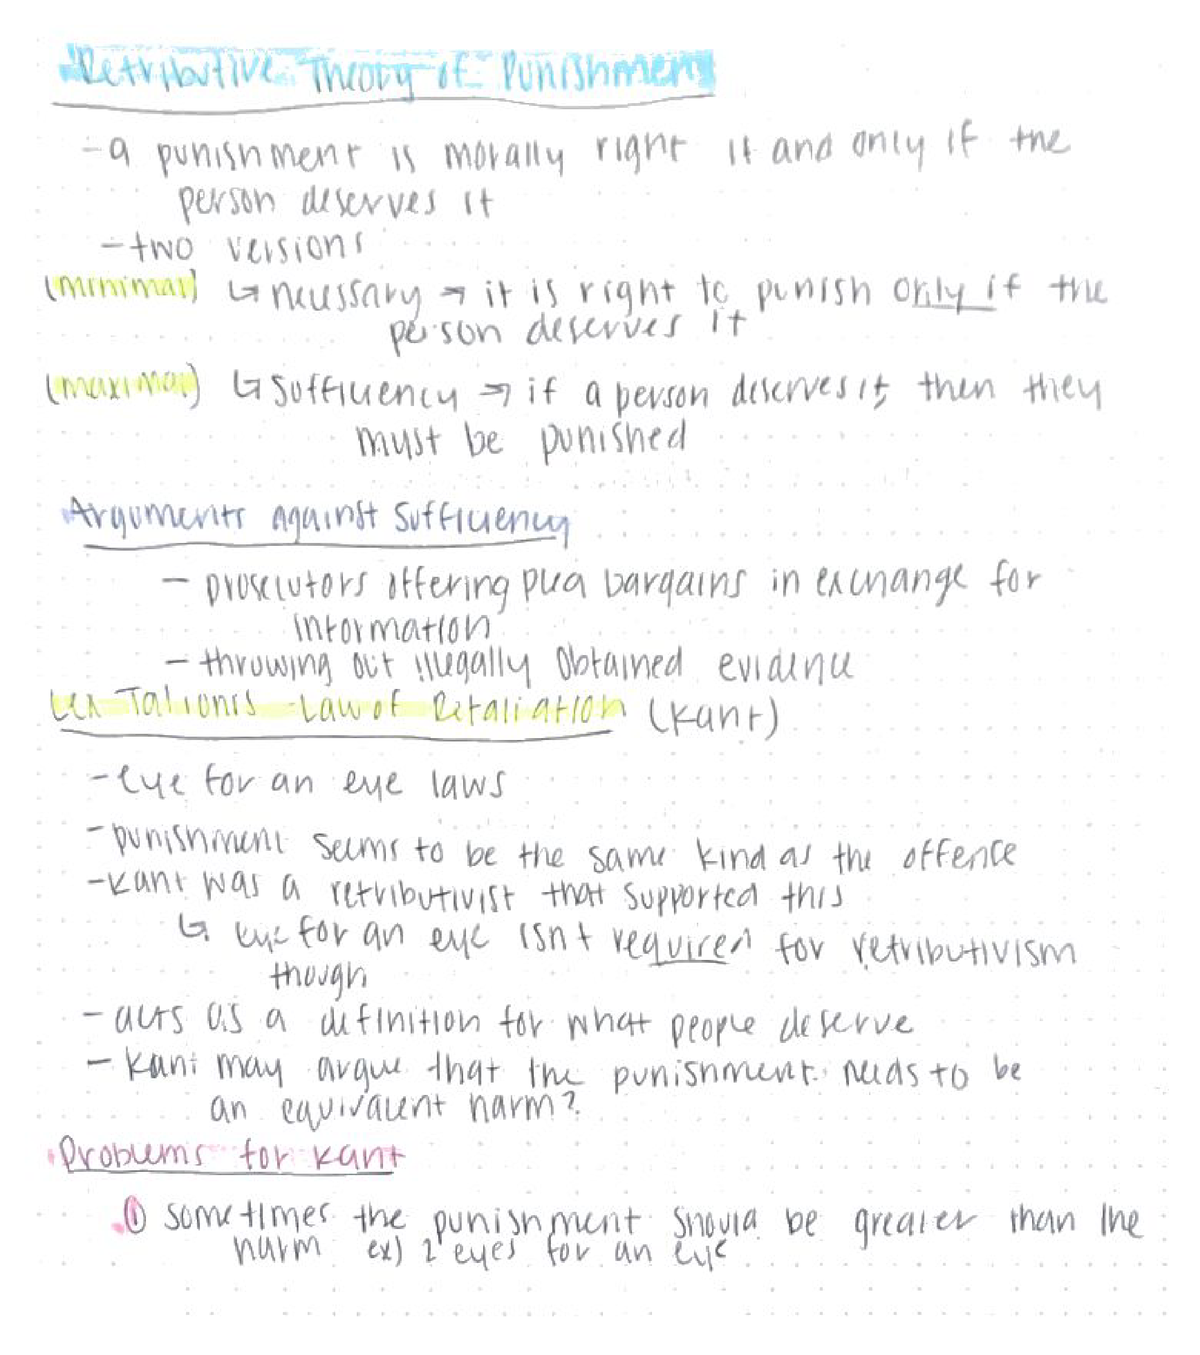 Retributive Theory of Punishment
- a punishment is morally right if and only if the
person deserves it
- two versions
(minimal) ↳ necessary → it is right to punish only if the
person deserves it
(maximal) ↳ Sufficiency → if a person deserves it, then they
must be punished
Arguments against Sufficiency
- prosecutors offering plea bargains in exchange for
information
- throwing out illegally obtained evidence
Lex Talionis - Law of Retaliation (Kant)
- eye for an eye laws
- punishment seems to be the same kind as the offence
- Kant was a retributivist that supported this
↳ eye for an eye isnt required for retributivism
though
- acts as a definition for what people deserve
- Kant may argue that the punishment needs to be
an equivalent harm?
Problems for Kant
① sometimes the punishment should be greater than the
harm ex) 2 eyes for an eye